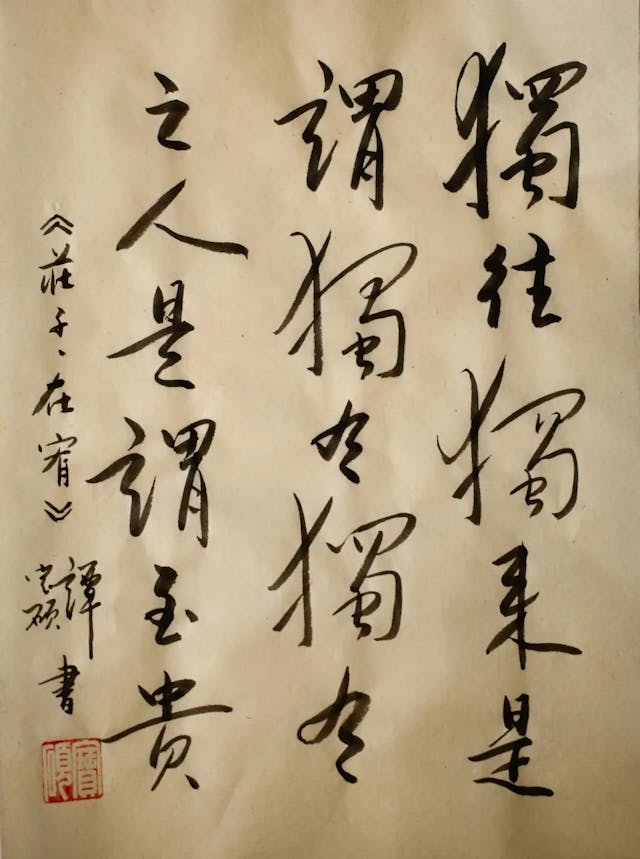 獨往獨來是
謂獨有獨有
之人是謂至貴
《莊子·在宥》
譚寶碩書
寶碩